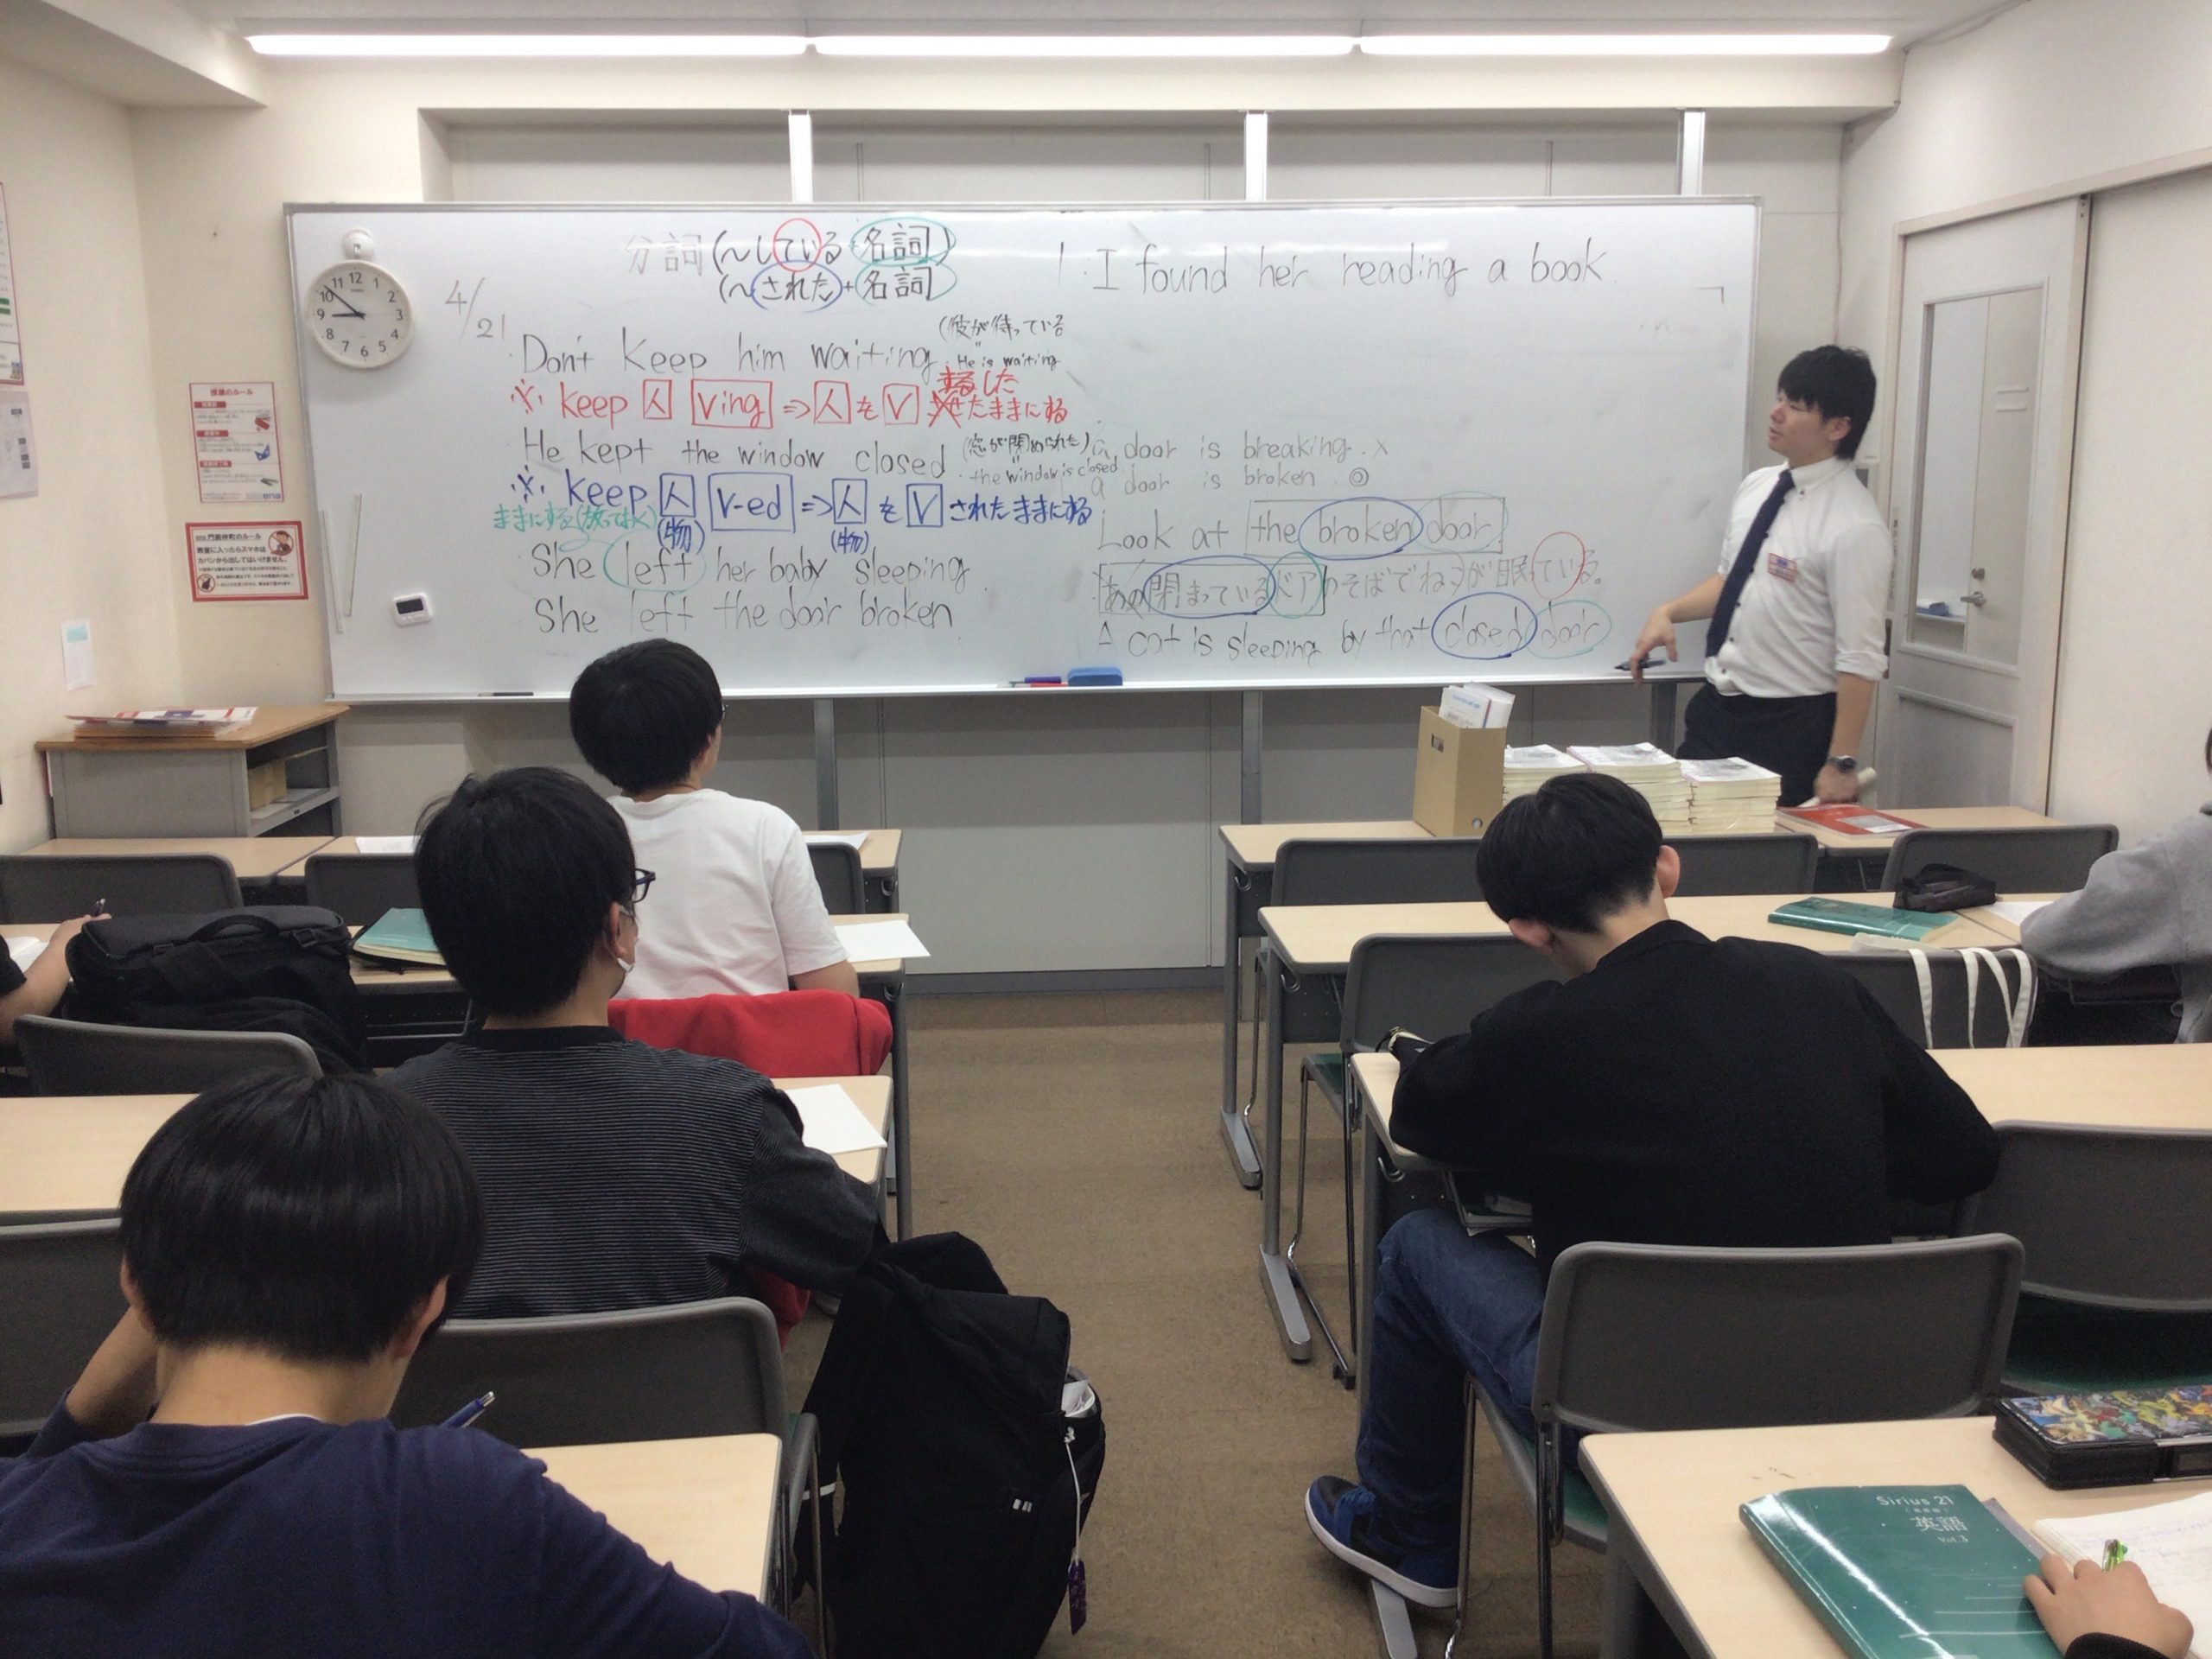 分詞(〜している+名詞)
(〜された+名詞)
4/21
Don't keep him waiting
(彼が待っている
He is waiting
※ keep 人 Ving ⇒ 人を V したままにする
He kept the window closed
(窓が閉められた)
the window is closed.
※ keep 人 V-ed ⇒ 人を V されたままにする
(物) (物)
ままにする(放っておく)
She left her baby sleeping
She left the door broken
1. I found her reading a book.
a door is breaking. ×
a door is broken. ◎
Look at the broken door.
あの閉まっているドアのそばでねコが眠っている。
A cat is sleeping by that closed door.
11 12 1
10 2
9 3
8 4
7 6 5
授業のルール
ena
ena 門前仲町のルール
教室に入ったらスマホは
カバンから出してはいけません。
Sirius 21
英語
Vol.3